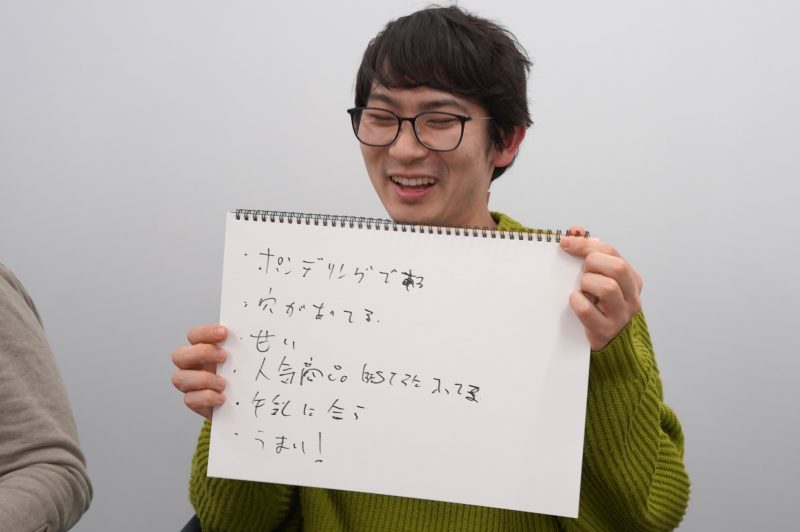 ・ポンデリングである
・穴があいてる.
・甘い
・人気商品 BEST3に入ってる
・牛乳に合う
・うまい！